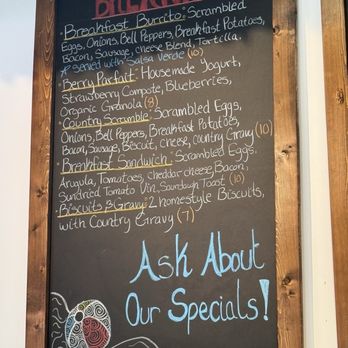 Breakfast Burrito: Scrambled
Eggs, Onions, Bell Peppers, Breakfast Potatoes,
Bacon, Sausage, cheese Blend, Tortilla.
* served with Salsa Verde (10)
Berry Parfait: Housemade Yogurt,
Strawberry Compote, Blueberries,
Organic Granola (8)
Country Scramble: Scrambled Eggs,
Onions, Bell Peppers, Breakfast Potatoes,
Bacon, Sausage, Biscuit, cheese, country Gravy (10)
Breakfast Sandwich: Scrambled Eggs,
Arugula, Tomatoes, cheddar cheese, Bacon,
Sundried Tomato Vin, Sourdough Toast (10)
Biscuits & Gravy: 2 homestyle Biscuits,
with Country Gravy (7)
Ask About
Our Specials!